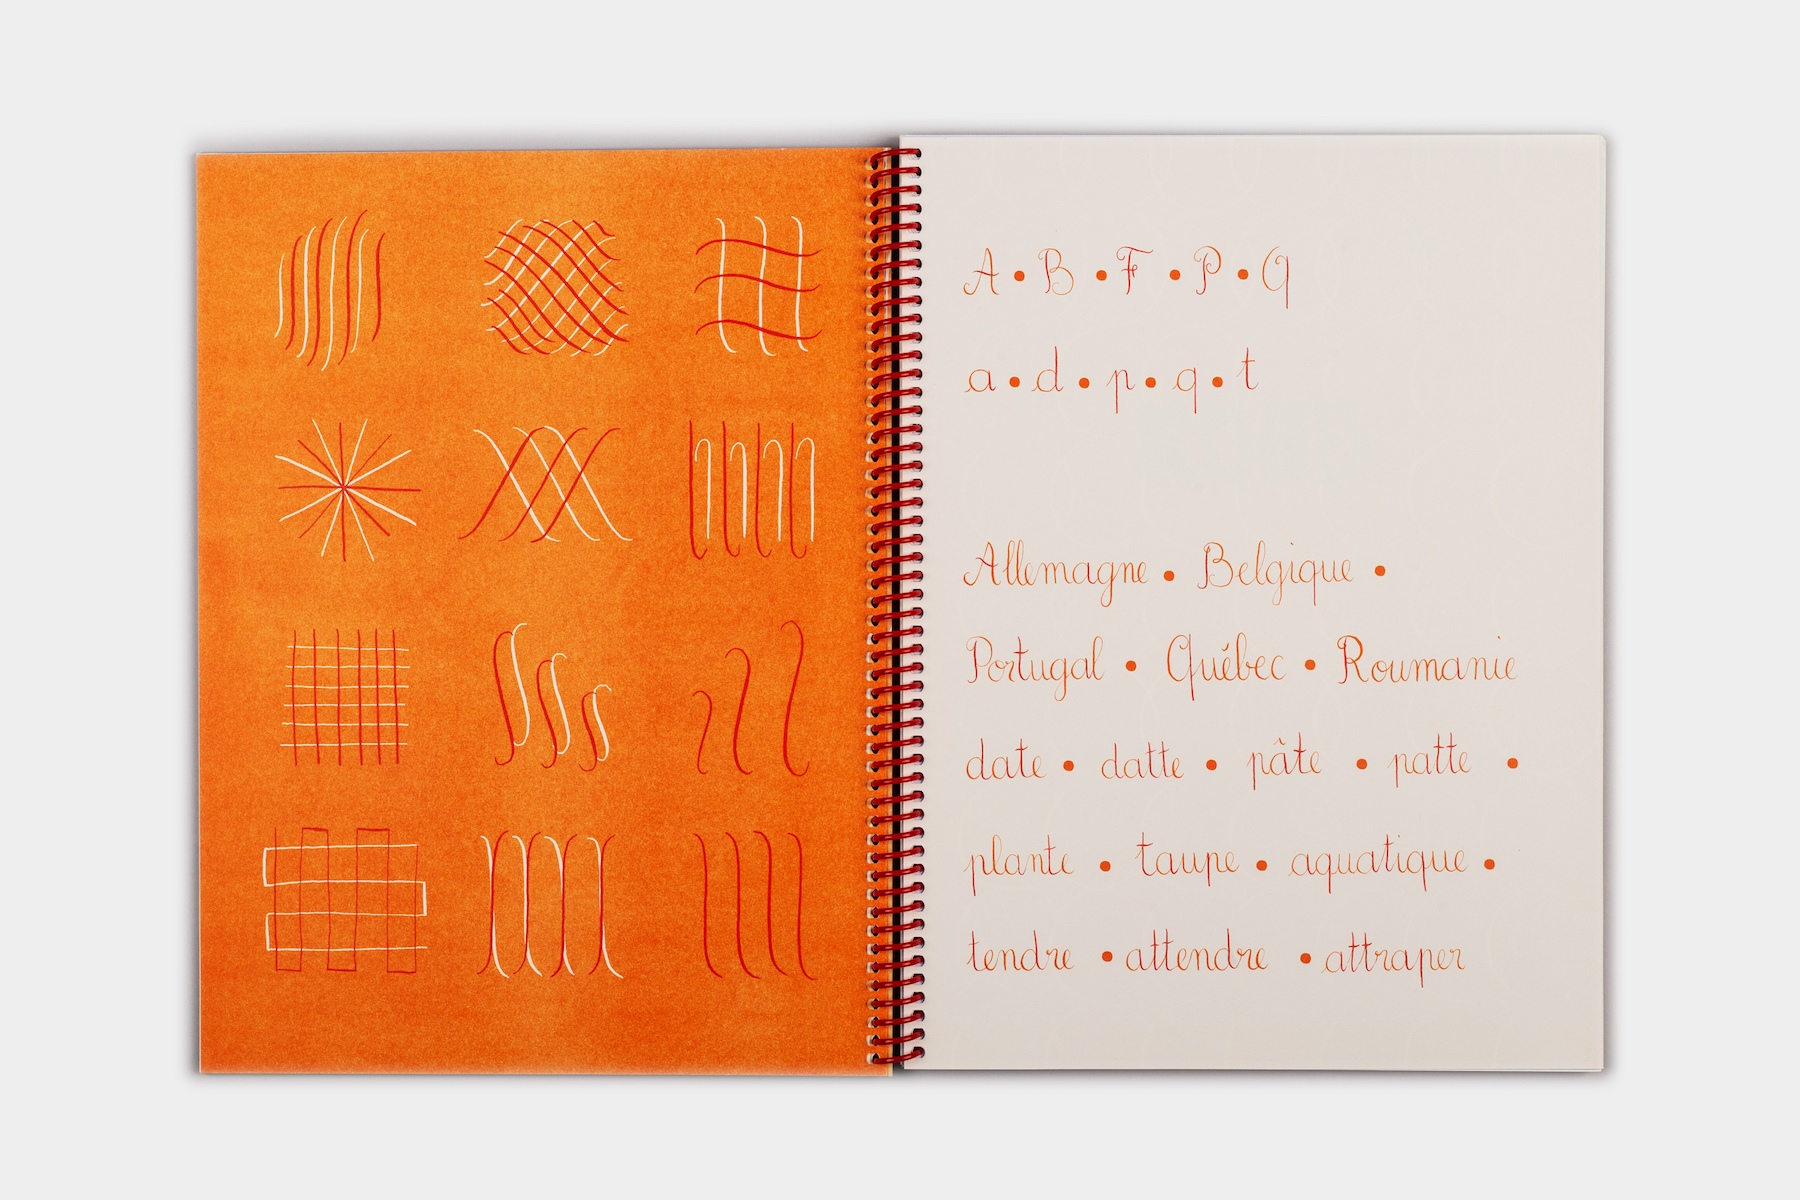 A • B • F • P • Q
a • d • p • q • t
Allemagne • Belgique •
Portugal • Québec • Roumanie
date • datte • pâte • patte •
plante • taupe • aquatique •
tendre • attendre • attraper